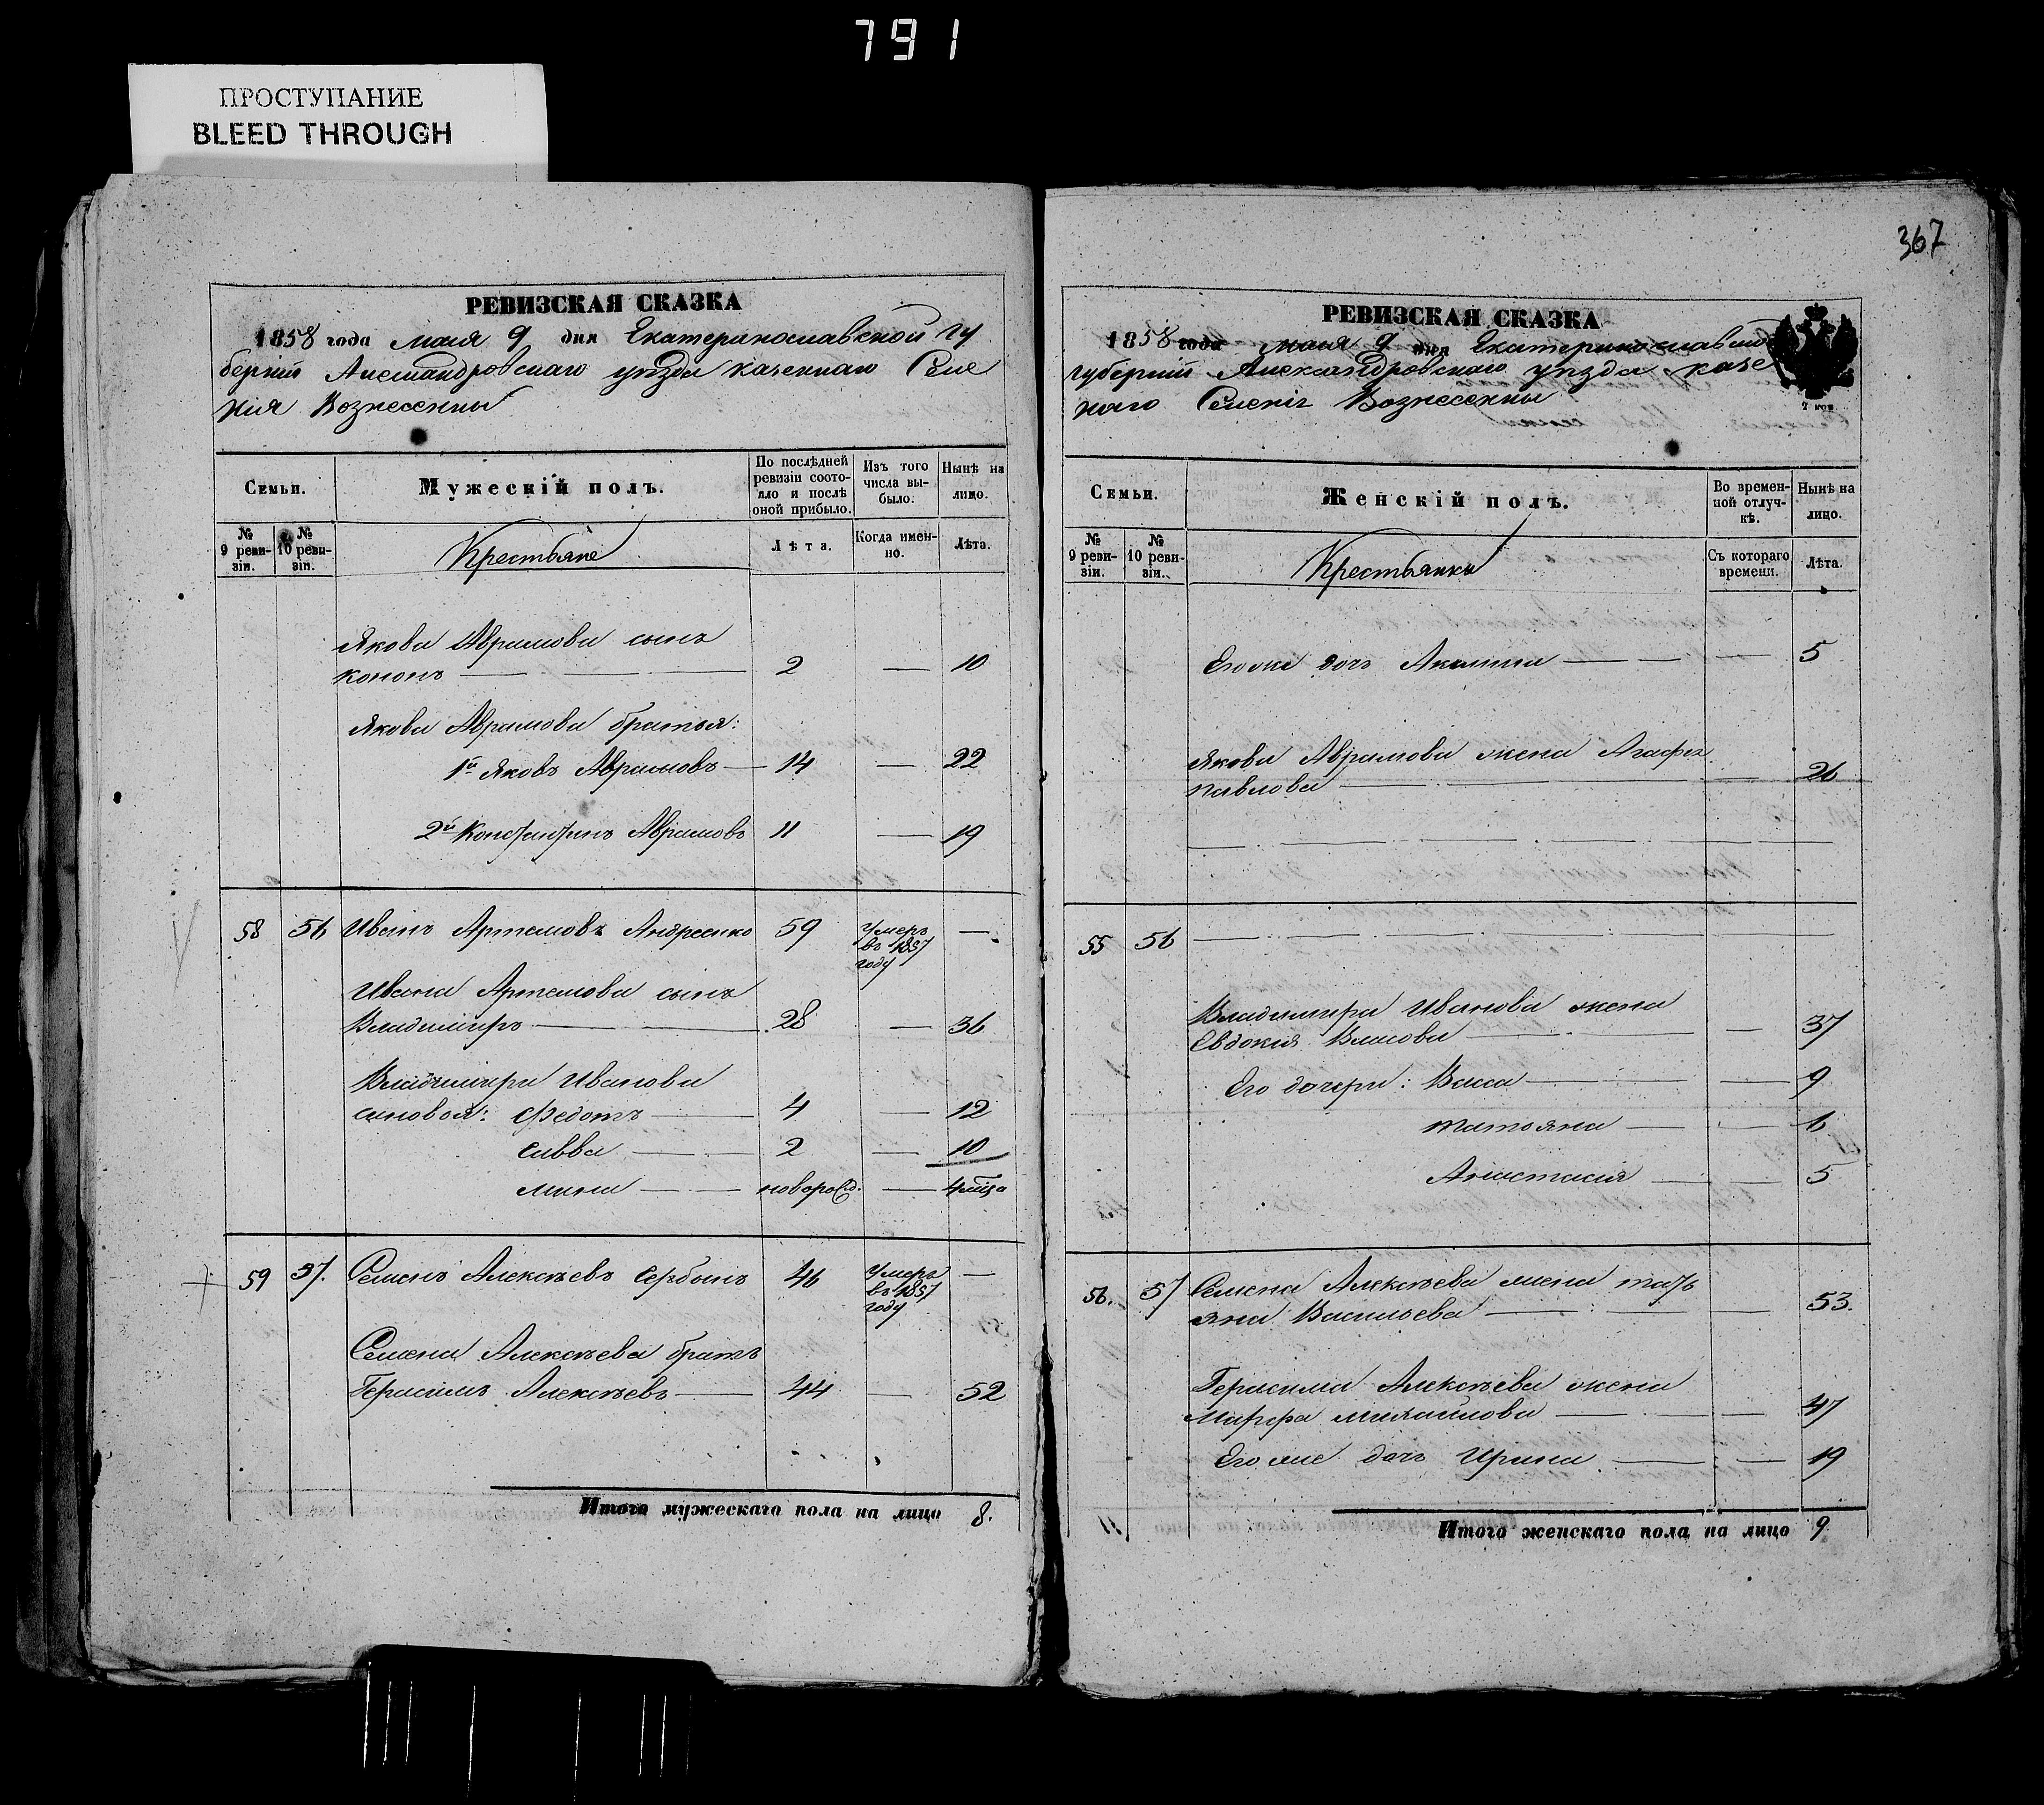 791
ПРОСТУПАНИЕ
BLEED THROUGH
РЕВИЗСКАЯ СКАЗКА
1858 года мая 9 дня Екатеринославской гу
берніи Александровскаго уѣзда казеннаго Селе
нія Вознесенки
Семьи.
Мужескій полъ.
По послѣдней ревизіи состояло и послѣ оной прибыло.
Изъ того числа выбыло.
Нынѣ на лицо.
№ 9 ревизіи.
№ 10 ревизіи.
Крестьяне
Лѣта.
Когда именно.
Лѣта.
Якова Аврамова сынъ
Кононъ — 2 — 10
Якова Аврамова братья:
1й Яковъ Аврамовъ — 14 — 22
2й Константинъ Аврамовъ 11 — 19
58 56 Иванъ Артемовъ Андреенко 59 Умеръ в 1857 году —
Ивана Артемова сынъ
Владимиръ — 28 — 36
Владимира Иванова
синовья: Федотъ — 4 — 12
Савва — 2 — 10
Мина — новорожд. — 4 мѣсяца
59 57. Семенъ Алексѣевъ Сербинъ 46 Умеръ въ 1857 году —
Семена Алексѣева братъ
Герасимъ Алексѣевъ — 44 — 52
Итого мужескаго пола на лицо 8.
367
РЕВИЗСКАЯ СКАЗКА
1858 года мая 9 дня Екатеринославской
губерніи Александровскаго уѣзда казе
наго Селенія Вознесенки
2 коп
Семьи.
Женскій полъ.
Во временной отлучкѣ.
Нынѣ на лицо.
№ 9 ревизіи.
№ 10 ревизіи.
Крестьянки
Съ котораго времени.
Лѣта.
Его же дочь Акилина — — 5
Якова Аврамова жена Агафія
Павлова — — 26
55 56
Владимира Иванова жена
Евдокия Власова — — 37
Его дочери: Васса — — 9
Татьяна — — 6
Анастасия — — 5
56. 57 Семена Алексѣева жена Тать
яна Васильева — — 53.
Герасима Алексѣева жена
Марфа Михайлова — — 47
Его же дочь Ирина — — 19
Итого женскаго пола на лицо 9